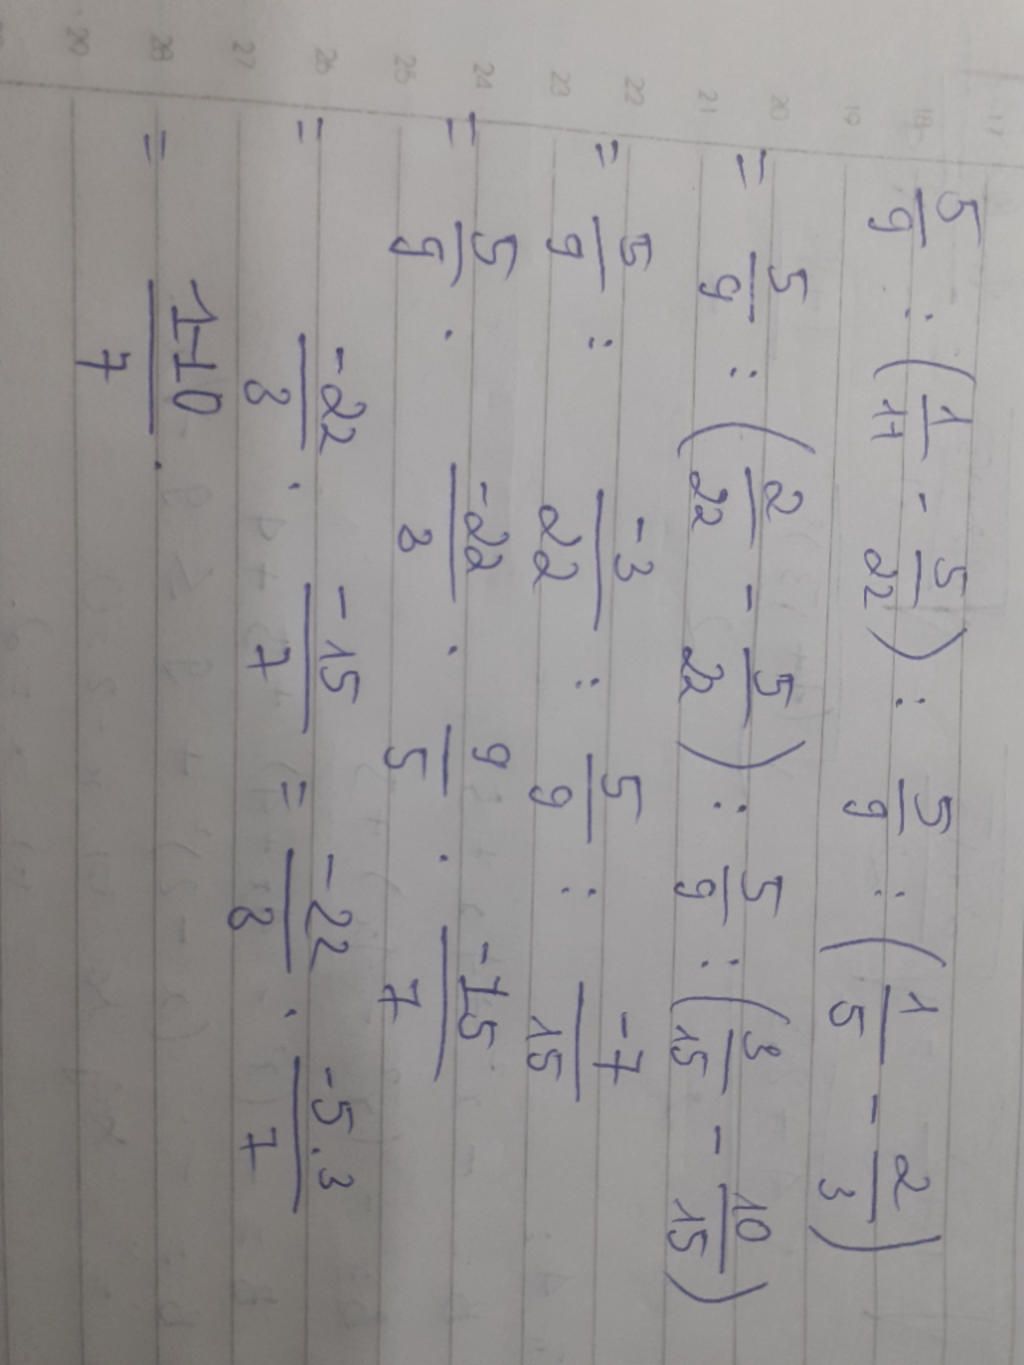 5/9 : (1/11 - 5/22) : 5/9 : (1/5 - 2/3)
= 5/9 : (2/22 - 5/22) : 5/9 : (3/15 - 10/15)
= 5/9 : -3/22 : 5/9 : -7/15
= 5/9 . -22/3 . 9/5 . -15/7
= -22/3 . -15/7 = -22/3 . -5.3/7
= 110/7 .